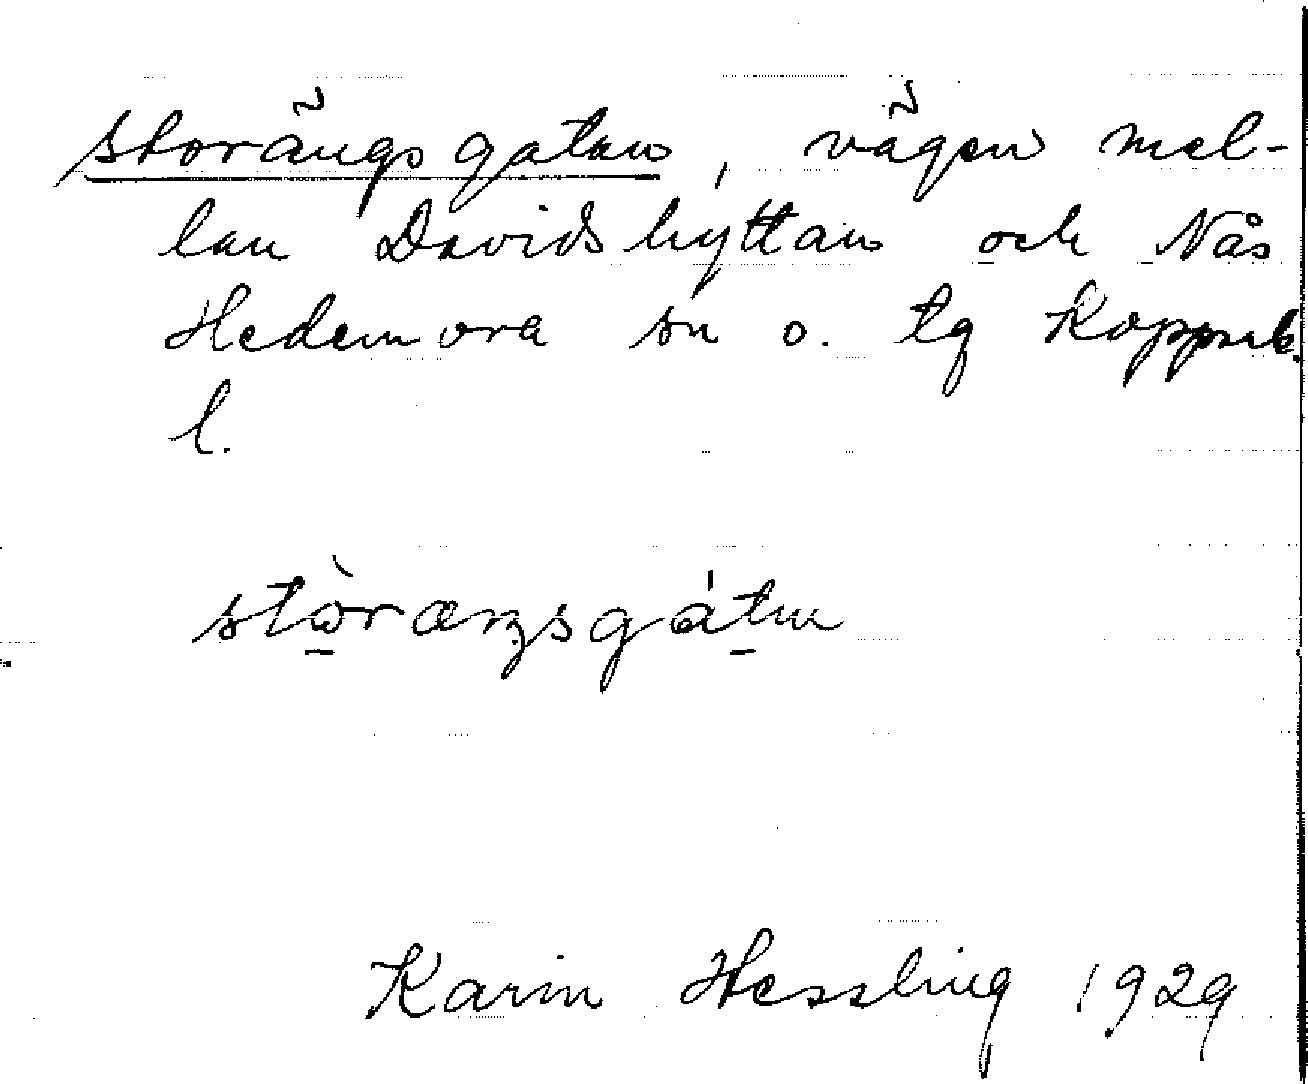 storängsgatan, vägen mel-
lan Davidshyttan och Nås
Hedemora sn o. tg Kopparb.
l.
stòræŋsgátn
Karin Hessling 1929